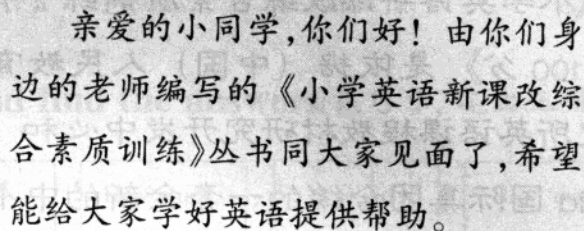 亲爱的小同学,你们好!由你们身
边的老师编写的《小学英语新课改综
合素质训练》丛书同大家见面了,希望
能给大家学好英语提供帮助。